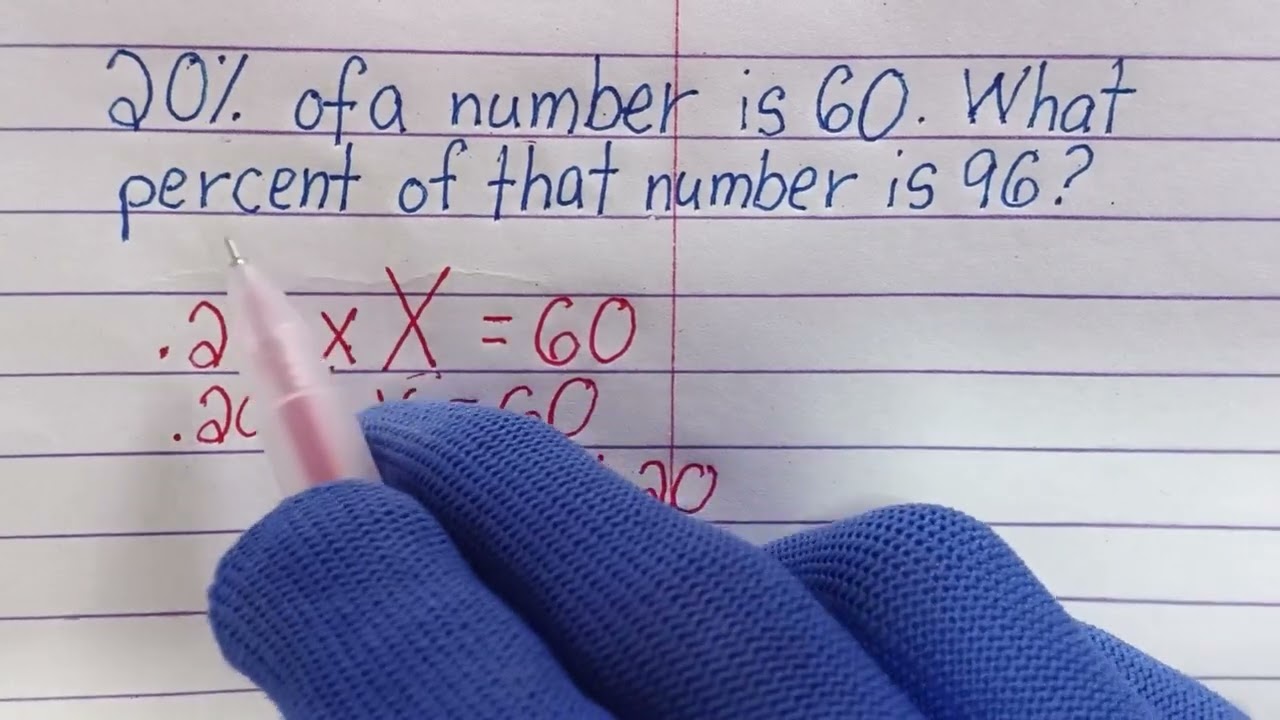 20% of a number is 60. What
percent of that number is 96?
.2 x X = 60
= 60
20